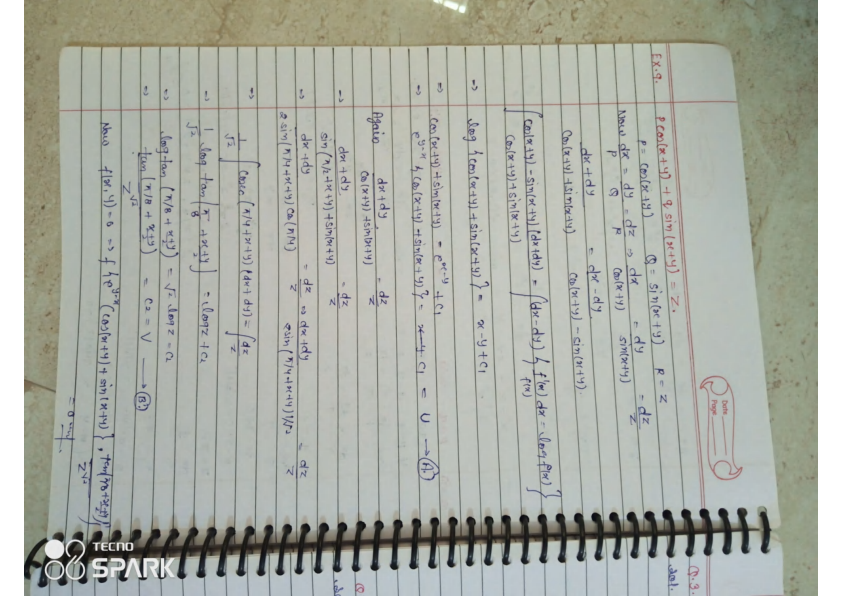 Date
Page
Ex.9. p cos(x+y) + q sin(x+y) = z.
P = cos(x+y) Q = sin(x+y) R = z
Now dx/P = dy/Q = dz/R ⇒ dx/cos(x+y) = dy/sin(x+y) = dz/z
dx+dy/cos(x+y)+sin(x+y) = dx-dy/cos(x+y)-sin(x+y)
∫ cos(x+y)-sin(x+y)/cos(x+y)+sin(x+y) (dx+dy) = ∫(dx-dy) { f'(x)/f(x) dx = log f(x) }
⇒ log {cos(x+y)+sin(x+y)} = x-y+c1
⇒ cos(x+y)+sin(x+y) = e^x-y + c1
⇒ e^y-x {cos(x+y)+sin(x+y)} = x-y c1 = U → (A)
Again dx+dy/cos(x+y)+sin(x+y) = dz/z
⇒ dx+dy/sin(π/2+x+y)+sin(x+y) = dz/z
⇒ dx+dy/2 sin(π/4+x+y) cos(π/4) = dz/z ⇒ dx+dy/2 sin(π/4+x+y) 1/√2 = dz/z
⇒ 1/√2 ∫ cosec(π/4+x+y)(dx+dy) = ∫dz/z
⇒ 1/√2 log tan (π/8 + x+y/2) = log z + c2
⇒ log tan (π/8 + x+y/2) = √2 log z = c2
⇒ tan (π/8 + x+y/2)/z^√2 = c2 = V → (B)
Now f(u,v)=0 ⇒ f { e^y-x (cos(x+y)+sin(x+y)}, tan(π/8+x+y/2)/z^√2 }
= 0
Q.3.
Sol.
TECNO
SPARK